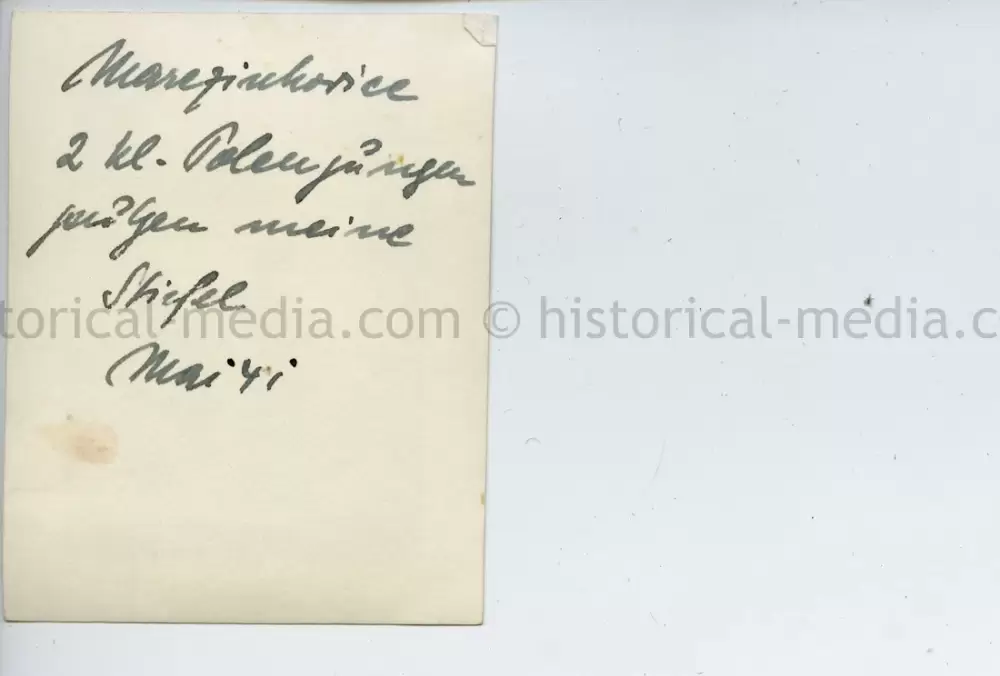 Marczinkovice
2 kl. Polenjungen
putzen meine
Stiefel
torical-media.com © historical-media.c
Mai 41